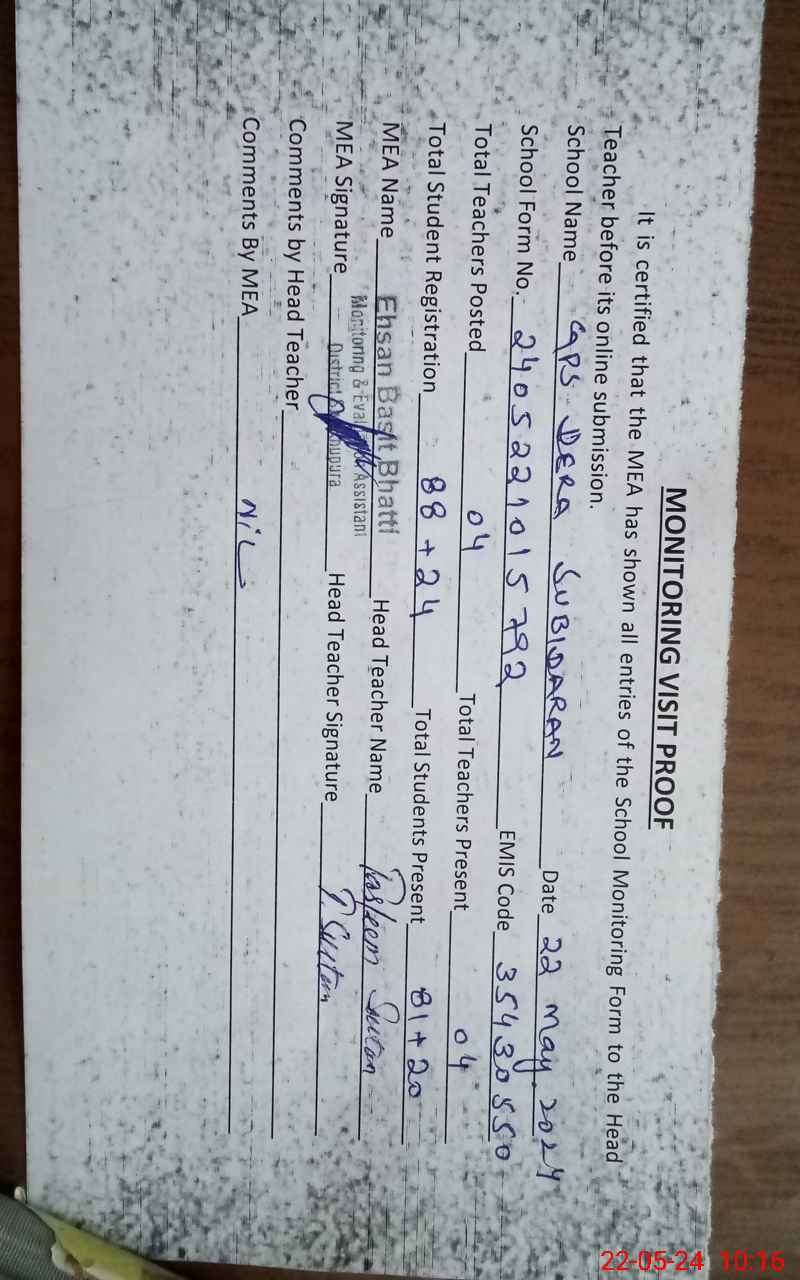 MONITORING VISIT PROOF
It is certified that the MEA has shown all entries of the School Monitoring Form to the Head
Teacher before its online submission.
School Name GPS DERA SUBIDARAN Date 22 May 2024
School Form No. 2405221015792 EMIS Code 35430550
Total Teachers Posted 04 Total Teachers Present 04
Total Student Registration 88 + 24 Total Students Present 81 + 20
MEA Name Ehsan Basit Bhatti Head Teacher Name Tasleem Sultan
Monitoring & Assistant
MEA Signature District Head Teacher Signature T. Sultan
Comments by Head Teacher
Comments By MEA NiL
22-05-24 10:16